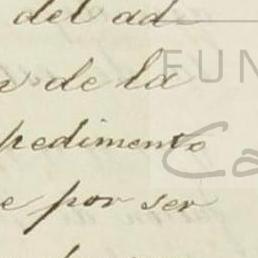 del ad
de la
FUN
pedimento
Ca
e por ser